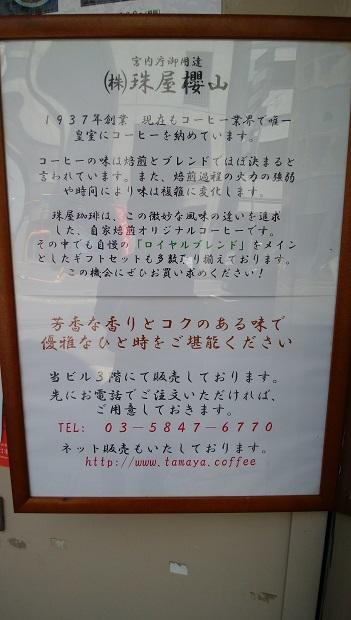 宮内庁御用達
㈱珠屋櫻山
1937年創業 現在もコーヒー業界で唯一
皇室にコーヒーを納めています。
コーヒーの味は焙煎とブレンドでほぼ決まると
言われています。また、焙煎過程の火力の強弱
や時間により味は複雑に変化します。
珠屋珈琲は、この微妙な風味の違いを追求
した、自家焙煎オリジナルコーヒーです。
その中でも自慢の「ロイヤルブレンド」をメイン
としたギフトセットも多数取り揃えております。
この機会にぜひお買い求めください！
芳香な香りとコクのある味で
優雅なひと時をご堪能ください
当ビル3階にて販売しております。
先にお電話でご注文いただければ、
ご用意しておきます。
TEL: 03－5847－6770
ネット販売もいたしております。
http://www.tamaya.coffee